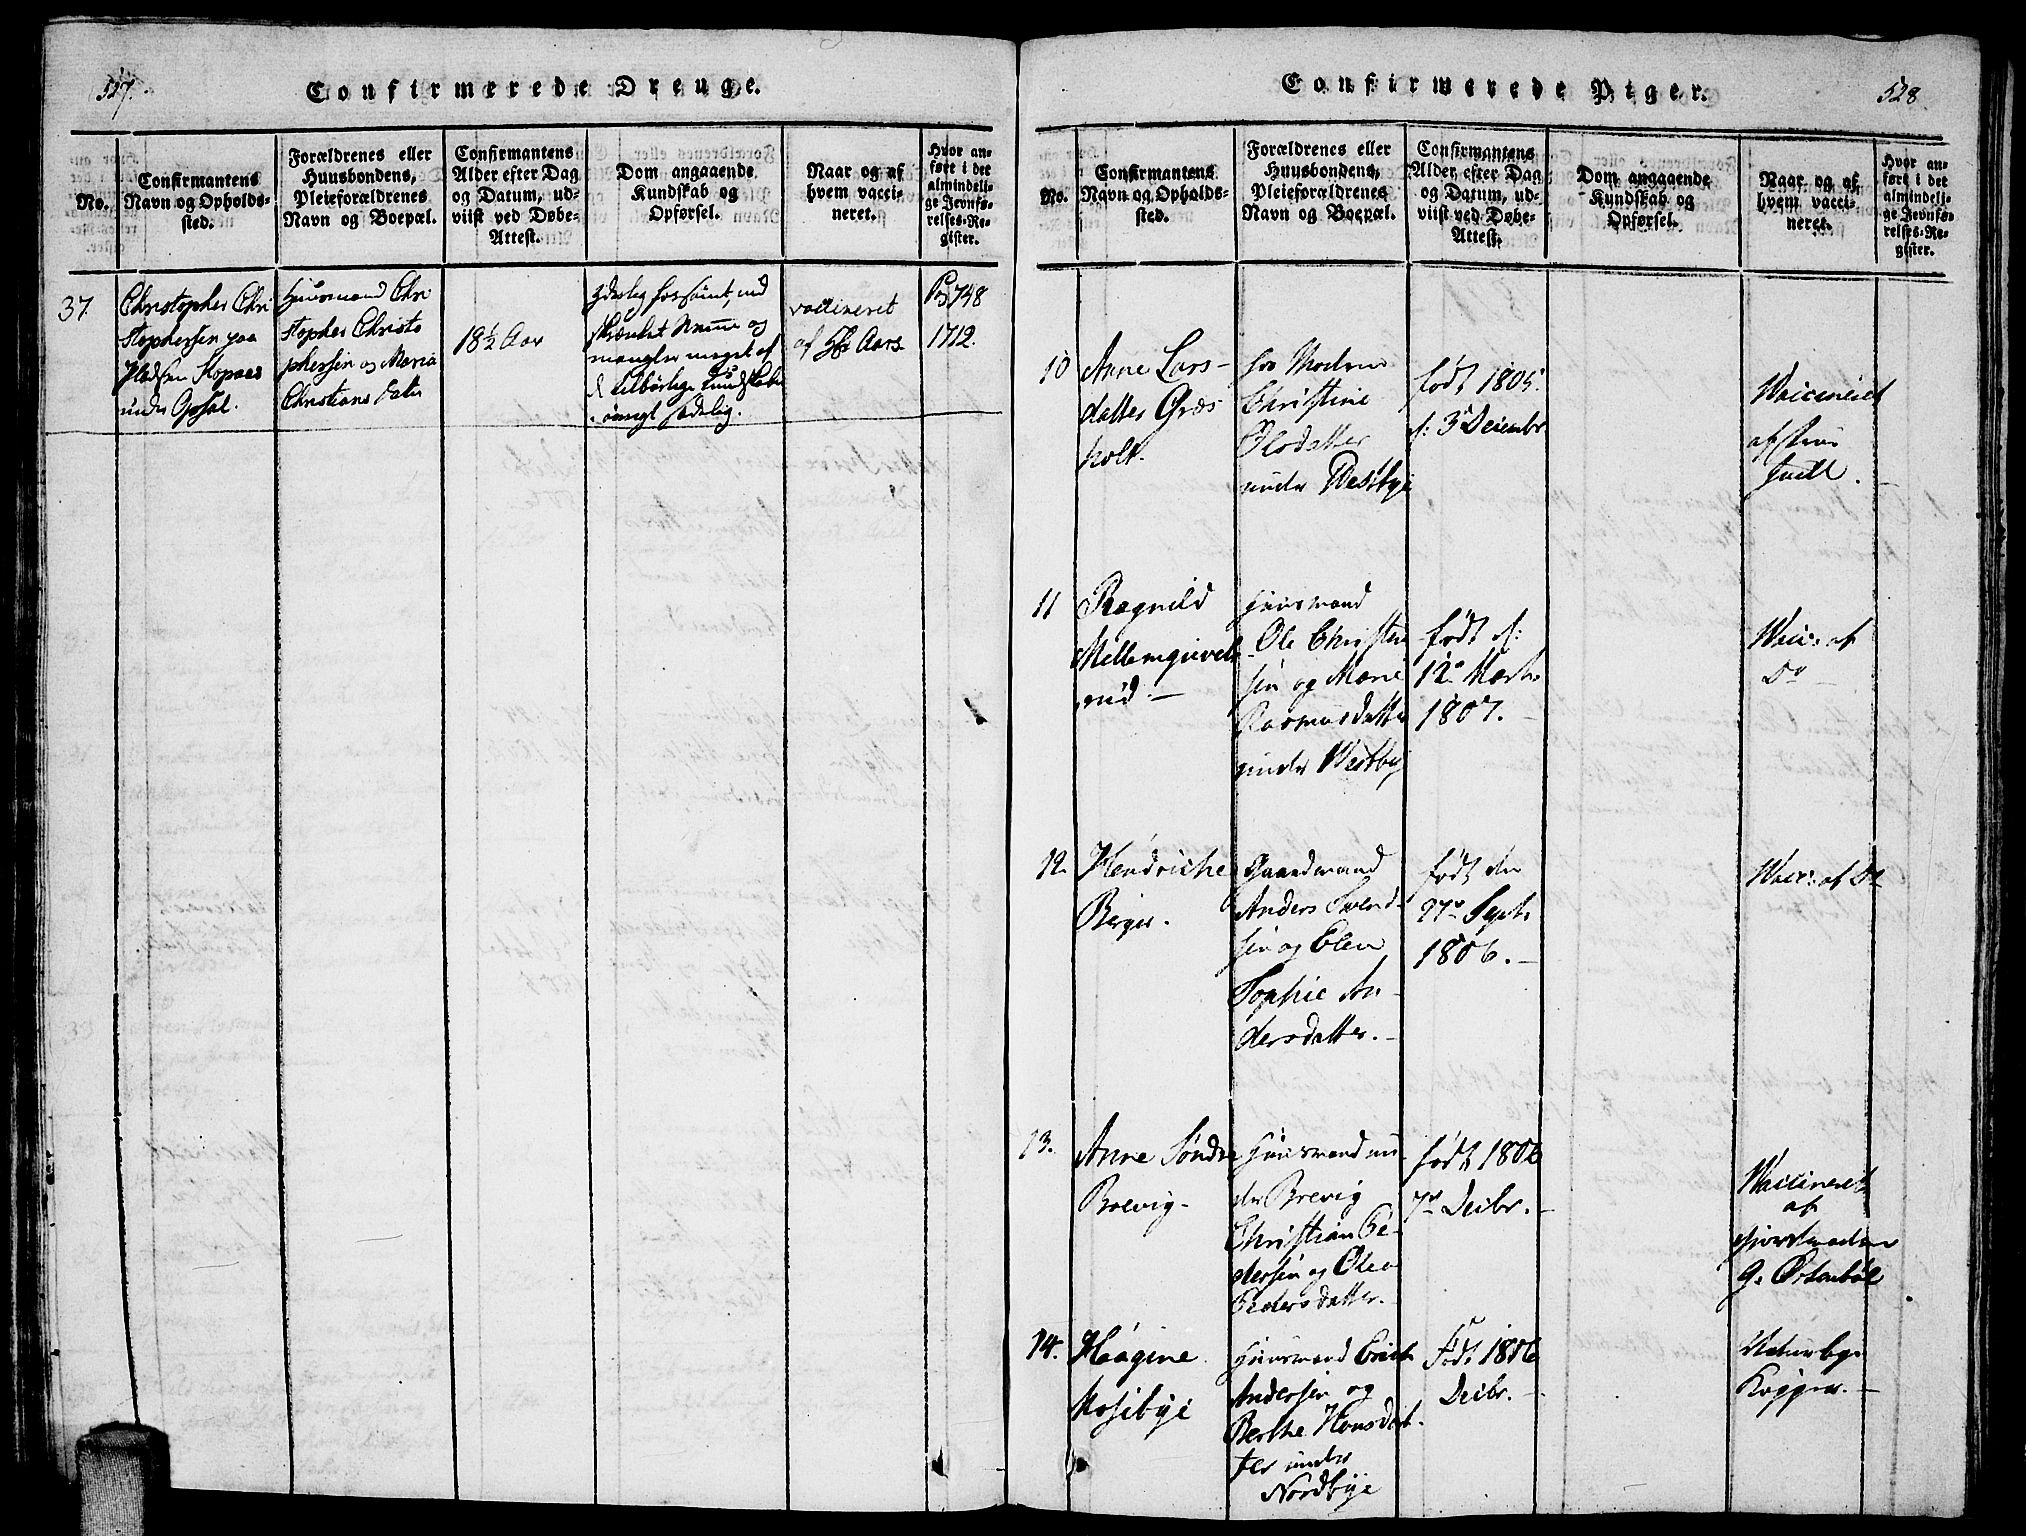 527.
Confirmerede Drenge.
No.
Confirmantens
Navn og Opholds-
sted.
Forældrenes eller
Huusbondens,
Pleieforældrenes
Navn og Boepæl.
Confirmantens
Alder efter Dag
og Datum, ud-
viist ved Døbe-
Attest.
Dom angaaende
Kundskab og
Opførsel.
Naar og af
hvem vacci-
neret.
Hvor an-
ført i det
almindeli-
ge Jevnfø-
relses-Re-
gister.
37.
Christopher Chri
stophersen paa
Stopaas
under Opsal.
Huusmand Chri
stopher Christo
phersen og Maria
Christians datter
18½ Aar
yderlig forsømt, ind
skrænket Nemme og
mangler meget af
d. tilbørlige kundskaber
øvrigt sædelig.
vaccineret
af Aars
Pag 748
1712.
Confirmerede Piger.
528.
No.
Confirmantens
Navn og Opholds-
sted.
Forældrenes eller
Huusbondens,
Pleieforældrenes
Navn og Boepæl.
Confirmantens
Alder efter Dag
og Datum, ud-
viist ved Døbe-
Attest.
Dom angaaende
Kundskab og
Opførsel.
Naar og af
hvem vacci-
neret.
Hvor an-
ført i det
almindeli-
ge Jevnfø-
relses-Re-
gister.
10
Anne Lars-
datter Græs
holt.
hos Modren
Christine
Olsdatter
under Westbye
født 1805.
d: 3 Decembr.
Vaccineret
af
11
Ragnild
Mellemgrevels
rud.-
Huusmand
Ole Christen
sen og Marie
Rasmusdatter
under Westbye
født d:
12te Marts
1807.-
Vacc: af
Do
12.
Hendriche
Berger.
Gaardmand
Anders Svend-
sen og Elen
Sophie An-
dersdatter.-
født den
27de Septr
1806.-
Vacc: af Do
13.
Anne Søndre
Brevig-
Huusmand un-
der Brevig
Christian Pe-
dersen og Olea
Pedersdatter.-
født 1806
7de Decbr.-
Vaccineret
af
Jordmoder
G. Østenbøl
14.
Haagine
Mosebye
Huusmand Erich
Andersen og
Berthe Hansdat-
ter under
Nordbye
Født 1806
Decbr.-
Naturlige
Kopper.-